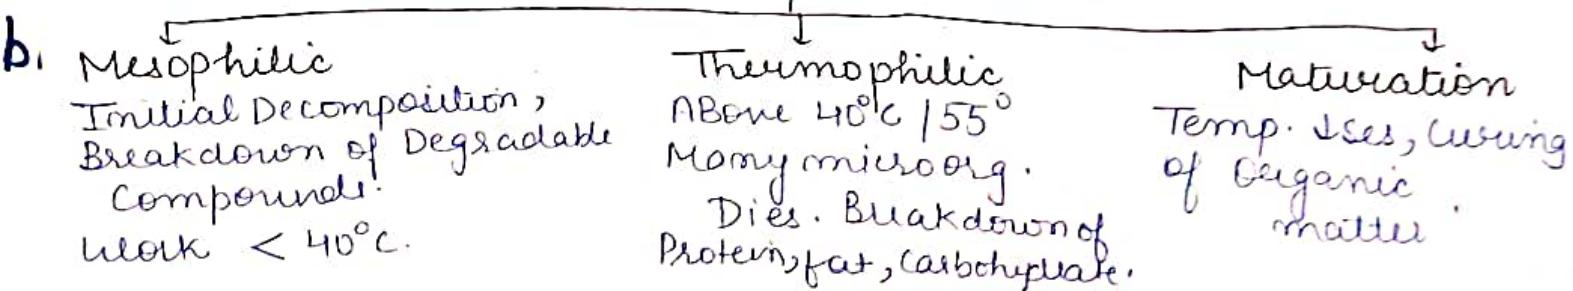 b.
Mesophilic
Initial Decomposition,
Breakdown of Degradable
Compounds.
Work < 40°C.
Thermophilic
Above 40°C / 55°
Many microorg.
Dies. Breakdown of
Protein, fat, Carbohydrate.
Maturation
Temp. ↓ses, Curing
of Organic
matter.